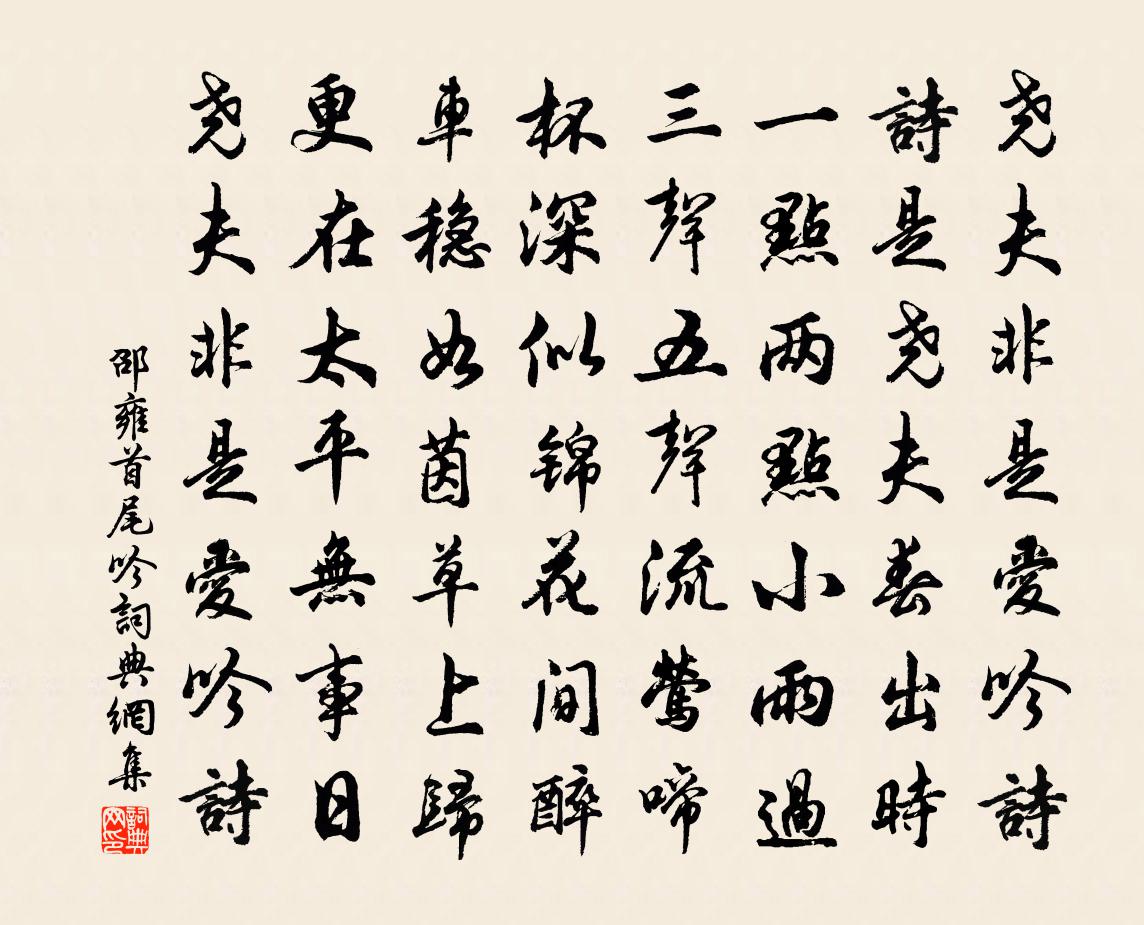 尧夫非是愛吟詩
詩是尧夫春出時
一點两點小雨過
三聲五聲流鶯啼
杯深似锦花间醉
車稳如茵草上歸
更在太平無事日
尧夫非是愛吟詩
邵雍首尾吟詞典網集
詞典网印